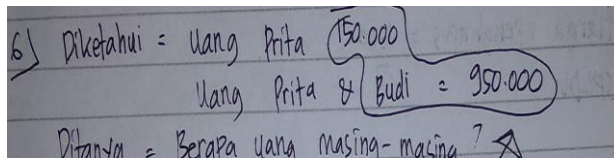 6) Diketahui = Uang Prita 150.000
Uang Prita & Budi = 950.000
Ditanya = Berapa uang masing-masing?